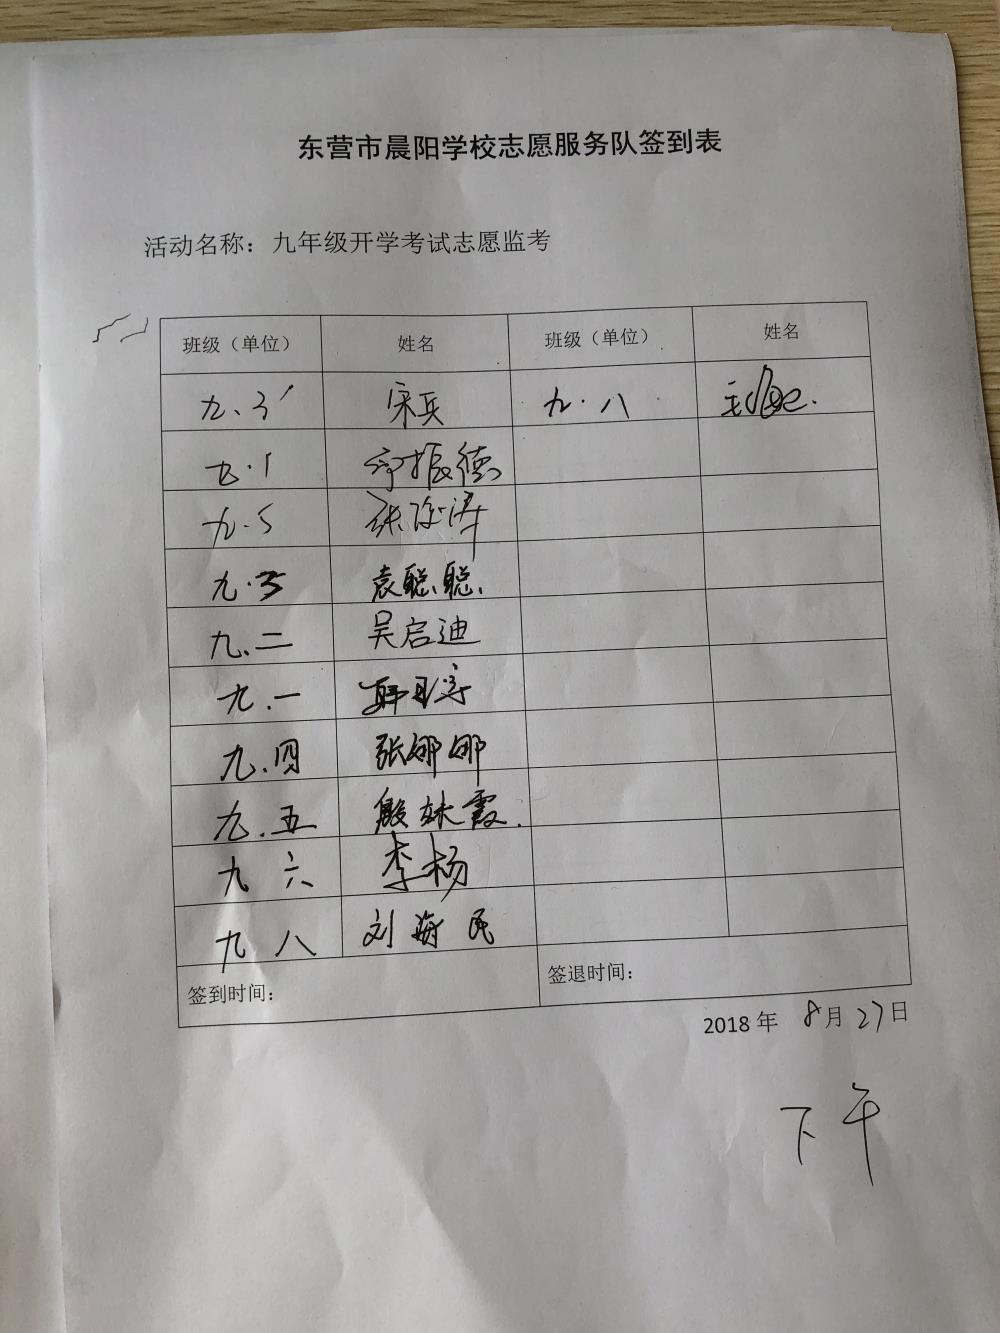 东营市晨阳学校志愿服务队签到表
活动名称：九年级开学考试志愿监考
班级（单位） 姓名 班级（单位） 姓名
九.3 宋兵 九.八
九.1 振德
九.5 张 涛
九.3 袁聪聪
九.二 吴启迪
九.一
九.四 张娜娜
九.五 殷林霞.
九 六 李杨
九 八 刘海民
签到时间： 签退时间：
2018年 8月27日
下午